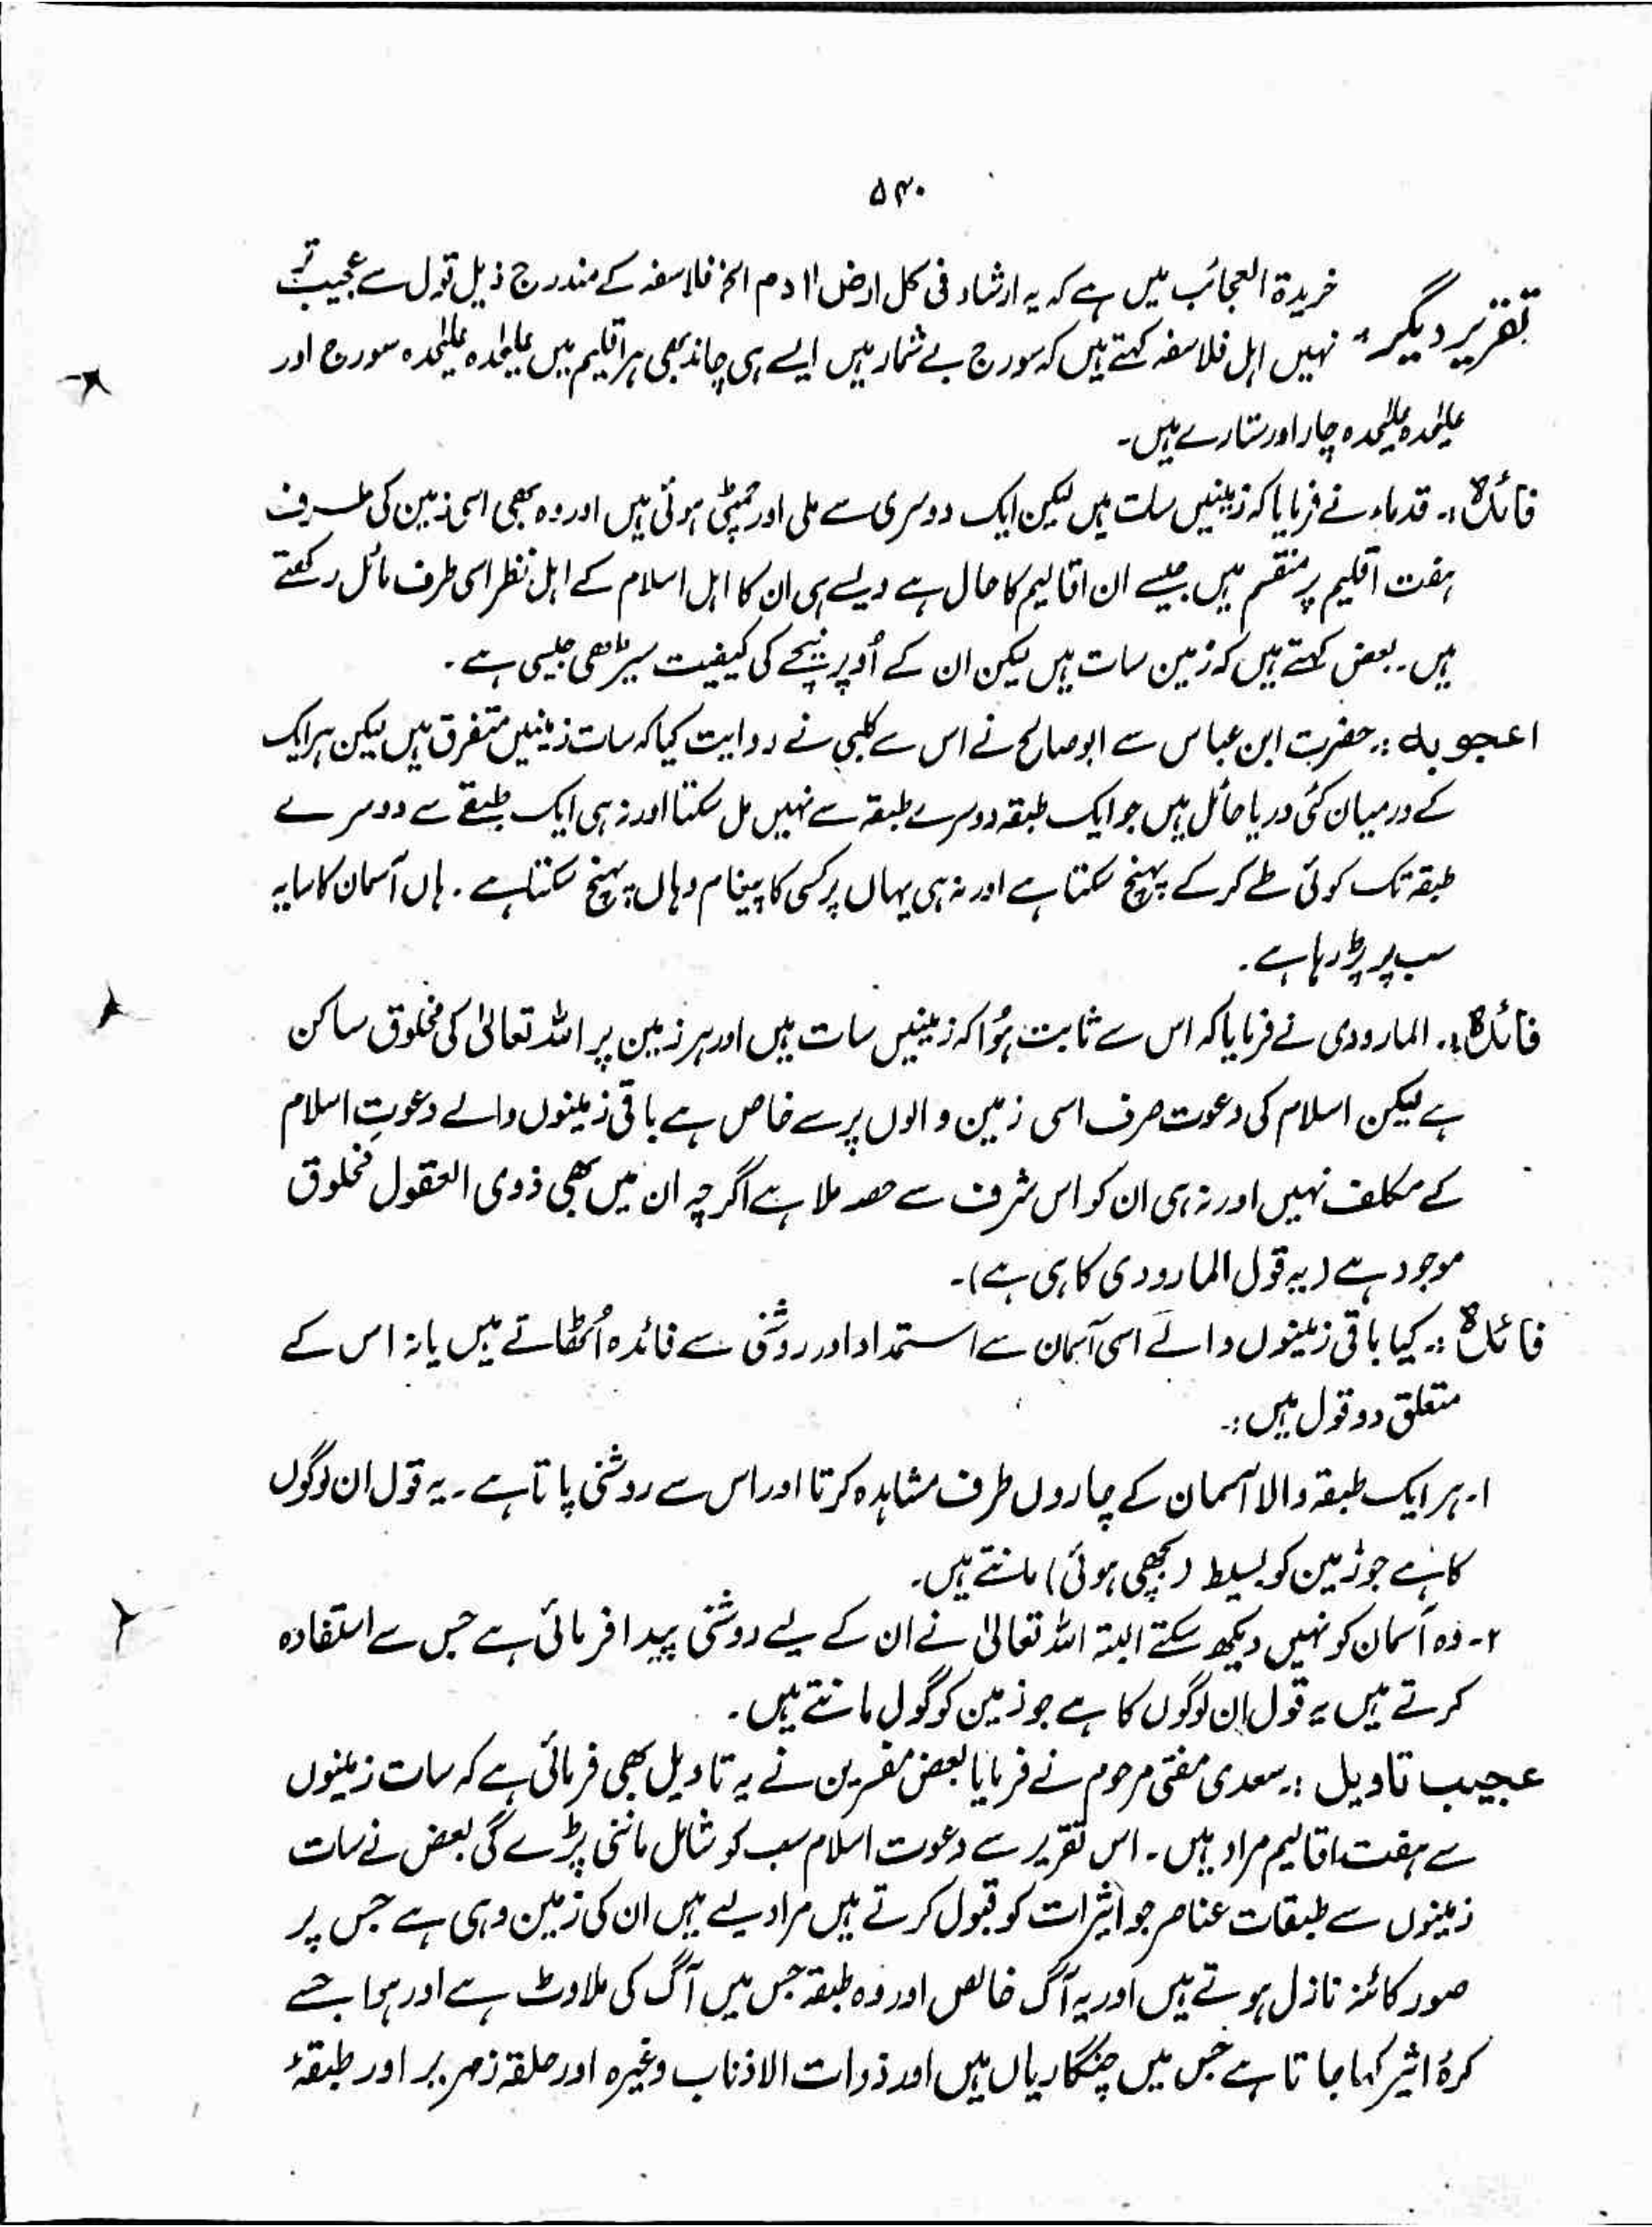 ۵۴۰
تقریر دیگر :- خریدۃ العجائب میں ہے کہ یہ ارشاد فی کل ارض اادم الخ فلاسفہ کے مندرج ذیل قول سے عجیب تر
نہیں اہل فلاسفہ کہتے ہیں کہ سورج بے شمار ہیں ایسے ہی چاند بھی ہر اقلیم میں علیٰحدہ علیٰحدہ سورج اور
علیٰحدہ علیٰحدہ چار اور ستارے ہیں۔
فائدہ :- قدماء نے فرمایا کہ زمینیں سات ہیں لیکن ایک دوسری سے ملی اور چمٹی ہوئی ہیں اور وہ بھی اسی زمین کی طرف
ہفت اقلیم پر منقسم ہیں جیسے ان اقالیم کا حال ہے ویسے ہی ان کا اہل اسلام کے اہل نظر اسی طرف مائل رکھتے
ہیں۔ بعض کہتے ہیں کہ زمین سات ہیں لیکن ان کے اُوپر نیچے کی کیفیت سیڑھی جیسی ہے۔
اعجوبہ :- حضرت ابن عباس سے ابو صالح نے اس سے کلبی نے روایت کیا کہ سات زمینیں متفرق ہیں لیکن ہر ایک
کے درمیان کئی دریا حائل ہیں جو ایک طبقہ دوسرے طبقہ سے نہیں مل سکتا اور نہ ہی ایک طبقے سے دوسرے
طبقہ تک کوئی طے کر کے پہنچ سکتا ہے اور نہ ہی یہاں پر کسی کا پیغام وہاں پہنچ سکتا ہے۔ ہاں آسمان کا سایہ
سب پر پڑ رہا ہے۔
فائدہ :- الماوردی نے فرمایا کہ اس سے ثابت ہُوا کہ زمینیں سات ہیں اور ہر زمین پر اللہ تعالیٰ کی مخلوق ساکن
ہے لیکن اسلام کی دعوت صرف اسی زمین والوں پر سے خاص ہے باقی زمینوں والے دعوتِ اسلام
کے مکلف نہیں اور نہ ہی ان کو اس شرف سے حصہ ملا ہے اگرچہ ان میں بھی ذوی العقول مخلوق
موجود ہے (یہ قول الماوردی کا ہی ہے)۔
فائدہ :- کیا باقی زمینوں والے اسی آسمان سے استمداد اور روشنی سے فائدہ اُٹھاتے ہیں یا نہ اس کے
متعلق دو قول ہیں :-
۱- ہر ایک طبقہ والا آسمان کے چاروں طرف مشاہدہ کرتا اور اس سے روشنی پاتا ہے۔ یہ قول ان لوگوں
کا ہے جو زمین کو بسیط (بچھی ہوئی) مانتے ہیں۔
۲- وہ آسمان کو نہیں دیکھ سکتے البتہ اللہ تعالیٰ نے ان کے لیے روشنی پیدا فرمائی ہے جس سے استفادہ
کرتے ہیں یہ قول ان لوگوں کا ہے جو زمین کو گول مانتے ہیں۔
عجیب تاویل :- سعدی مفتی مرحوم نے فرمایا بعض مفسرین نے یہ تاویل بھی فرمائی ہے کہ سات زمینوں
سے ہفت اقالیم مراد ہیں۔ اس تقریر سے دعوت اسلام سب کو شامل ماننی پڑے گی بعض نے سات
زمینوں سے طبقات عناصر جو اثرات کو قبول کرتے ہیں مراد لیے ہیں ان کی زمین وہی ہے جس پر
صور کائنہ نازل ہوتے ہیں اور یہ آگ خالص اور وہ طبقہ جس میں آگ کی ملاوٹ ہے اور ہوا جسے
کرۂ اثیر کہا جاتا ہے جس میں چنگاریاں ہیں اور ذوات الاذناب وغیرہ اور حلقہ زمہریر اور طبقۂ